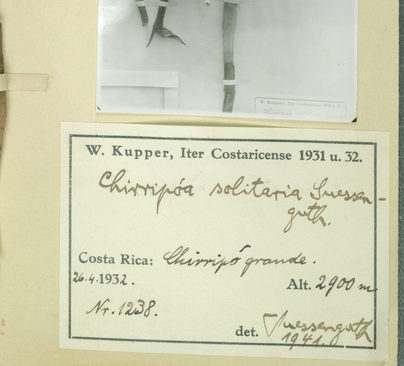 W. Kupper, Iter Costaricense 1931 u. 32.
Chirripóa solitaria Suessen-
guth.
Costa Rica: Chirripó grande.
26.4.1932. Alt. 2900 m
Nr. 1238.
det. Suessenguth
1941.